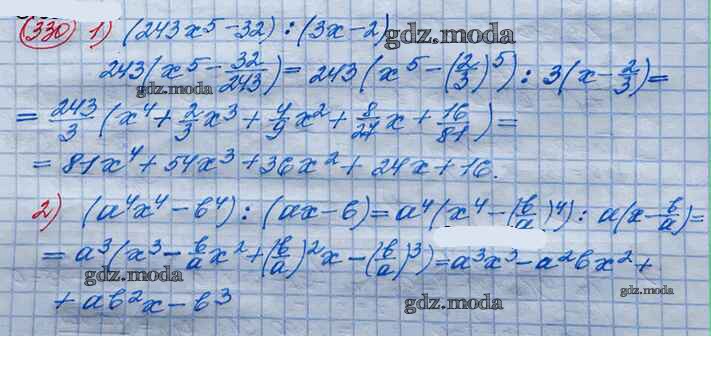 330) 1) (243x⁵ - 32) : (3x - 2)
gdz.moda
243(x⁵ - 32/243) = 243(x⁵ - (2/3)⁵) : 3(x - 2/3) =
gdz.moda
= 243/3 (x⁴ + 2/3 x³ + 4/9 x² + 8/27 x + 16/81) =
= 81x⁴ + 54x³ + 36x² + 24x + 16.
2) (a⁴x⁴ - b⁴) : (ax - b) = a⁴(x⁴ - (b/a)⁴) : a(x - b/a) =
= a³(x³ - b/a x² + (b/a)² x - (b/a)³) = a³x³ - a²bx² +
gdz.moda
gdz.moda
+ ab²x - b³
gdz.moda